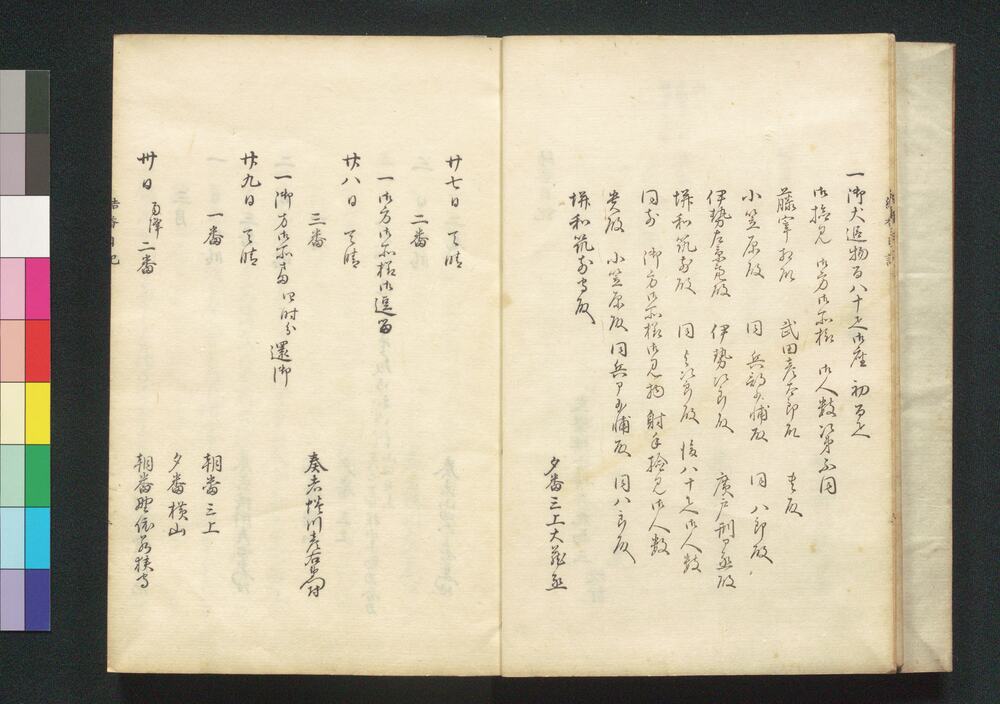 一御犬追物百八十疋御座 初百疋
御検見 御方御所様 御人数次第不同
藤宰相殿 武田彦太郎殿 貴殿
小笠原殿 同兵部少輔殿 同八郎殿
伊勢左京亮殿 伊勢次郎殿 廣戸刑部丞殿
垪和筑前殿 同与次郎殿 後八十疋御人数
同前 御方御所様御見物 射手検見御人数
貴殿 小笠原殿 同兵部少輔殿 同八郎殿
垪和筑前守殿
夕番三上大蔵丞
廿七日 天晴
二番
一御方御所様御逗留
廿八日 天晴
三番
奏者蜷川彦右衛門尉
一御方御所事 四時分還御
廿九日 天晴
一番
朝番三上
夕番横山
卅日 雨降 二番
朝番野依若狭守